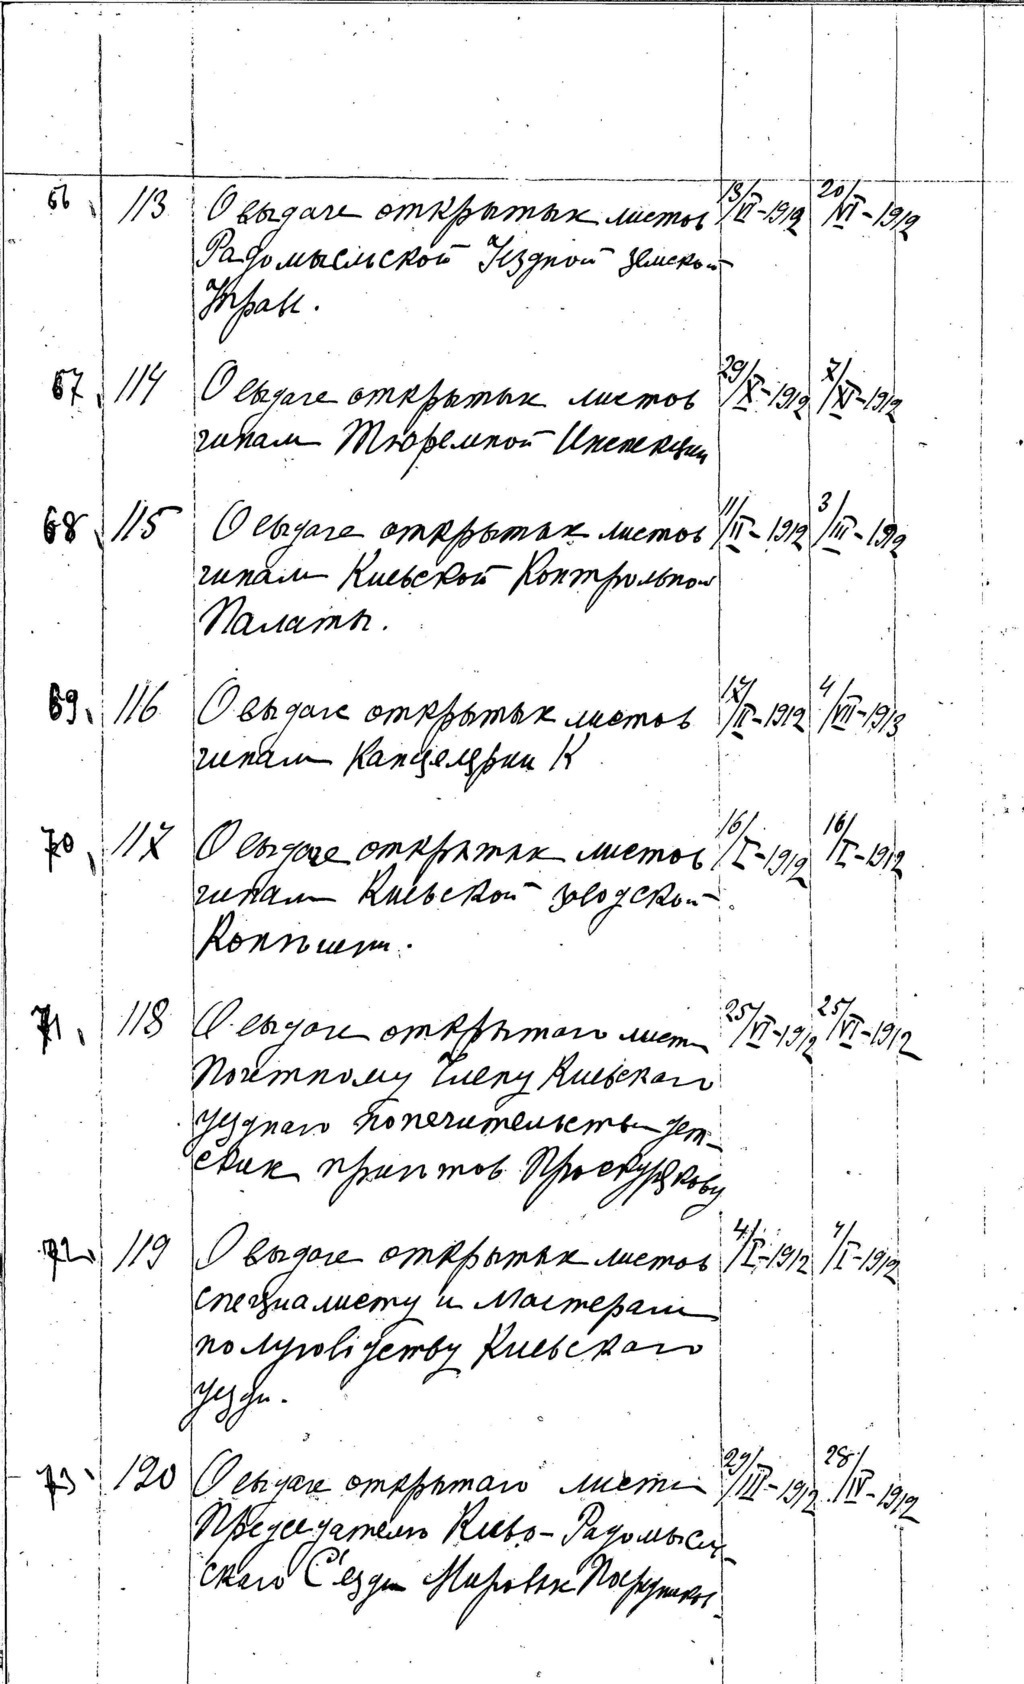 66. 113 О выдаче открытых листов 13/VI-1912 20/VI-1912
Радомысльской Уездной земской
Управе.
67. 114 О выдаче открытых листов 29/X-1912 7/XI-1912
чинам Тюремной Инспекции
68. 115 О выдаче открытых листов 11/II-1912 3/III-1912
чинам Киевской Контрольной
Палаты.
69. 116 О выдаче открытых листов 17/II-1912 4/VII-1913
чинам Канцелярии К
70. 117 О выдаче открытых листов 16/I-1912 16/I-1912
чинам Киевской заводской
Конюшни.
71. 118 О выдаче открытого листа 25/VI-1912 25/VI-1912
Почетному Члену Киевского
уездного попечительства дет-
ских приютов Проскурякову
72. 119 О выдаче открытых листов 4/I-1912 4/I-1912
специалисту и мастерам
по луговодству Киевского
уезда.
73. 120 О выдаче открытого листа 29/III-1912 28/IV-1912
Председателю Киево-Радомысль-
ского С'езда Мировых Посредников.